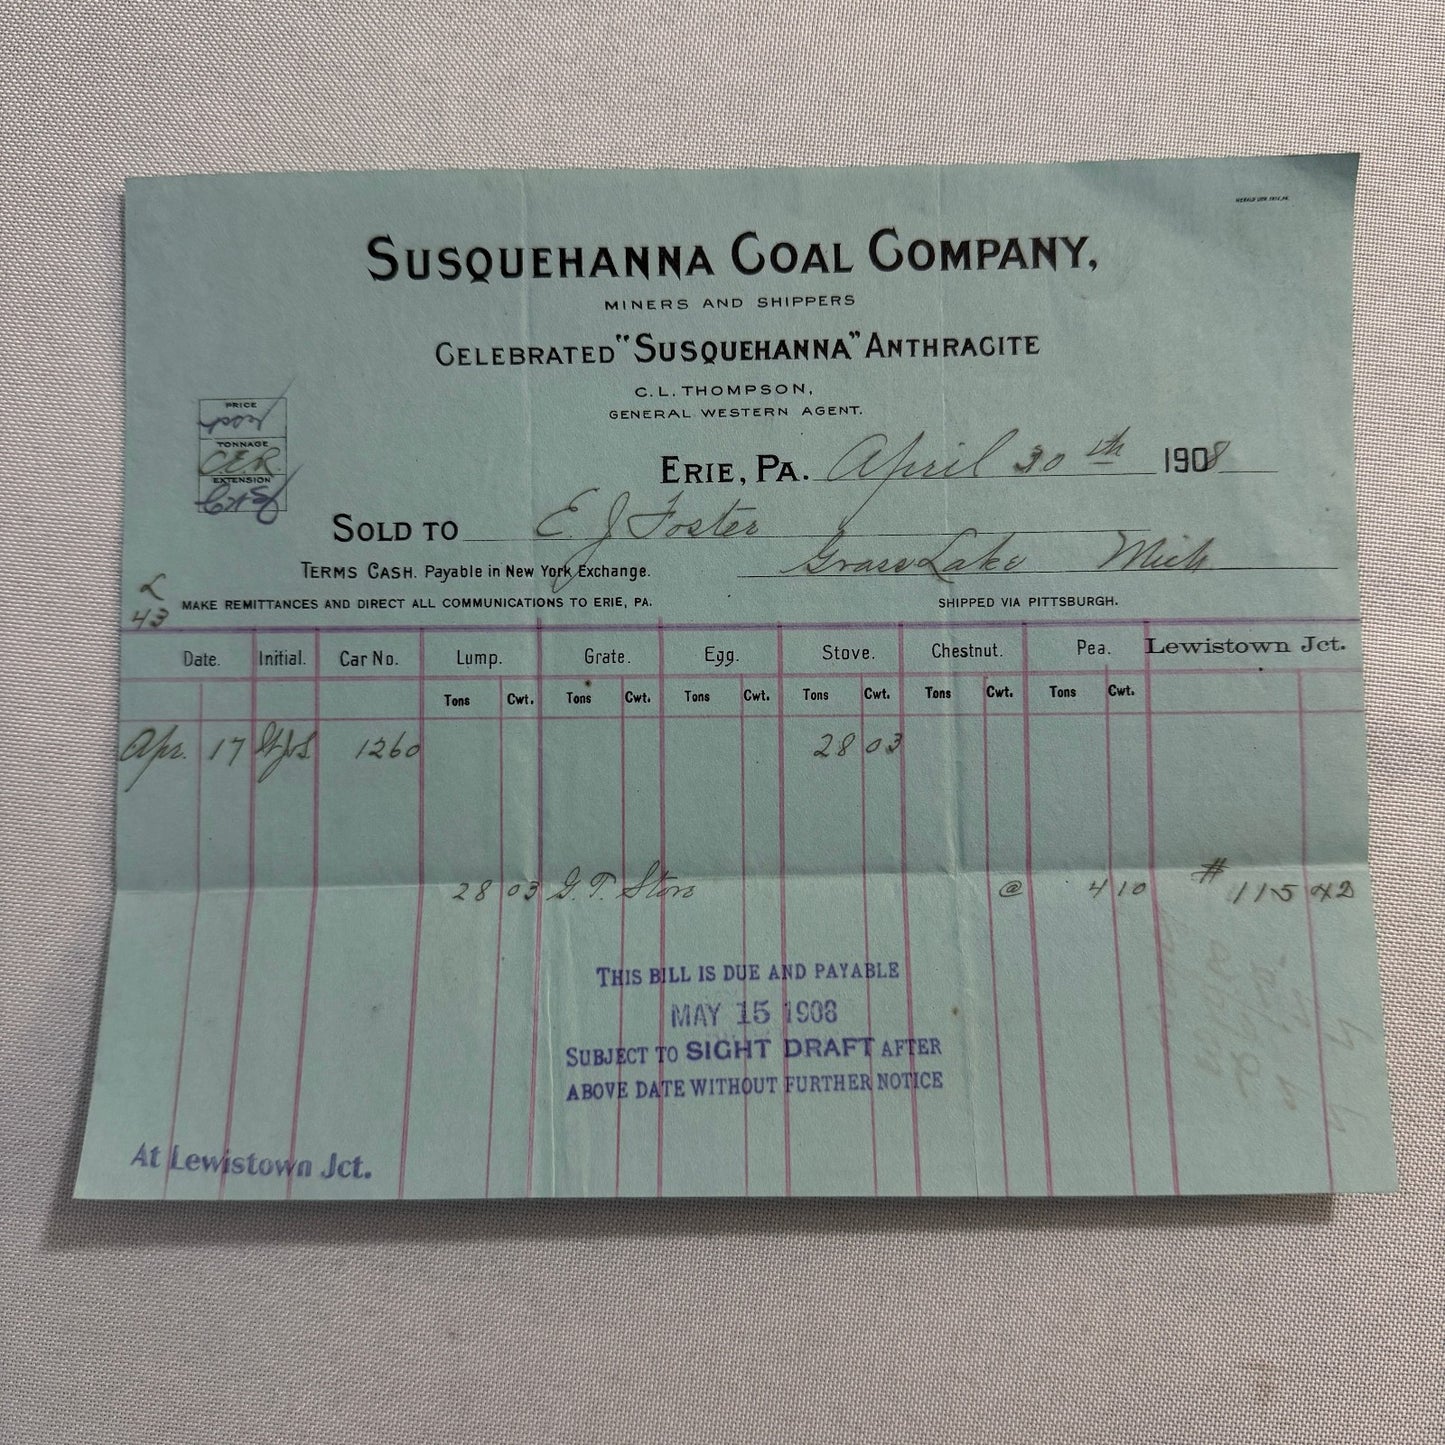 HERALD LITH. ERIE, PA.
SUSQUEHANNA COAL COMPANY,
MINERS AND SHIPPERS
CELEBRATED "SUSQUEHANNA" ANTHRACITE
C. L. THOMPSON,
GENERAL WESTERN AGENT.
PRICE
TONNAGE
CER
EXTENSION
ERIE, PA. April 30th 1908
SOLD TO E. J Foster
Grass Lake Mich
TERMS CASH. Payable in New York Exchange.
L
43
MAKE REMITTANCES AND DIRECT ALL COMMUNICATIONS TO ERIE, PA. SHIPPED VIA PITTSBURGH.
Date. Initial. Car No. Lump. Grate. Egg. Stove. Chestnut. Pea. Lewistown Jct.
Tons Cwt. Tons Cwt. Tons Cwt. Tons Cwt. Tons Cwt. Tons Cwt.
Apr. 17 1260 28 03
28 03 G. T. Stove @ 4 10 # 115 42
THIS BILL IS DUE AND PAYABLE
MAY 15 1908
SUBJECT TO SIGHT DRAFT AFTER
ABOVE DATE WITHOUT FURTHER NOTICE
At Lewistown Jct.